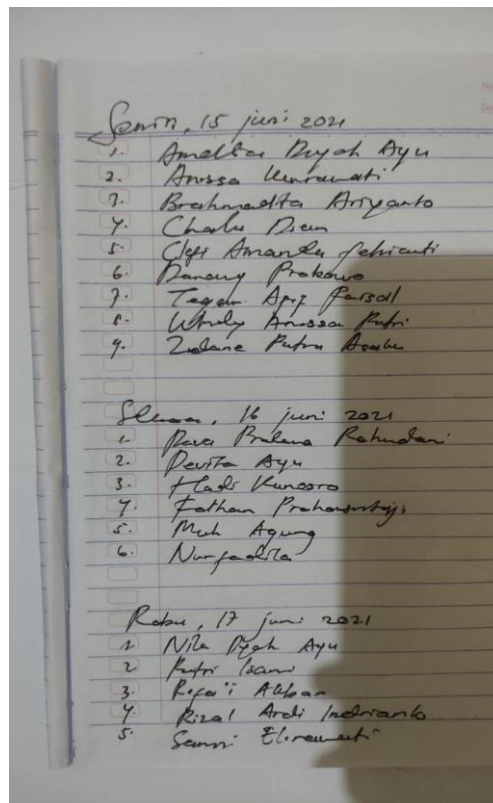 Senin, 15 juni 2021
1. Amelia Dyah Ayu
2. Anissa Kurniawati
3. Brahmadita Ariyanto
4. Charlu
5. Clefi Amanda Febrianti
6. Danang Prabowo
7. Tegar Apiz Faisal
8. Windy Anissa Putri
9. Zidane Putra
Selasa, 16 juni 2021
1. Rava
2. Devita Ayu
3. Hadi Kuncoro
4. Fathan
5. Muh Agung
6. Nurfadila
Rabu, 17 juni 2021
1 Nila Dyah Ayu
2 Putri Isami
3. Rifa'i Akbar
4. Rizal Ardi Indrianto
5. Sanni